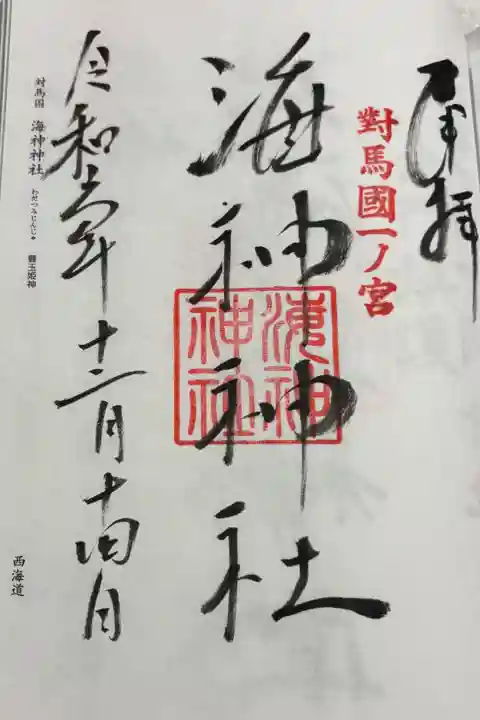 奉拝
對馬國一ノ宮
海神神社
海神神社
令和六年十二月十四日
対馬国 海神神社 わだつみじんじゃ 豊玉姫神
西海道